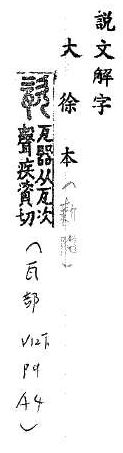 説文解字
大徐本(新附)
瓷
瓦器从瓦次
聲疾資切
(瓦部 V12下 P9 A4)